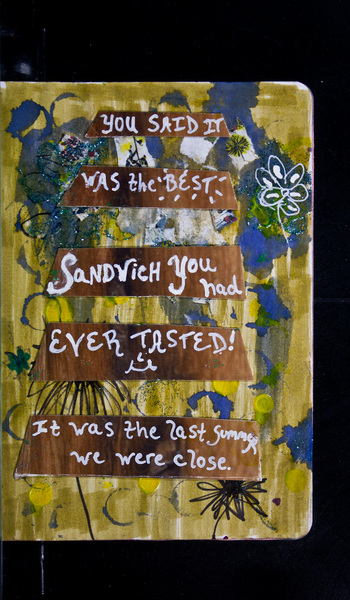 YOU SAID IT
WAS the BEST
SANDVICH YOU
had
EVER TASTED!
It was the last summer
we were close.